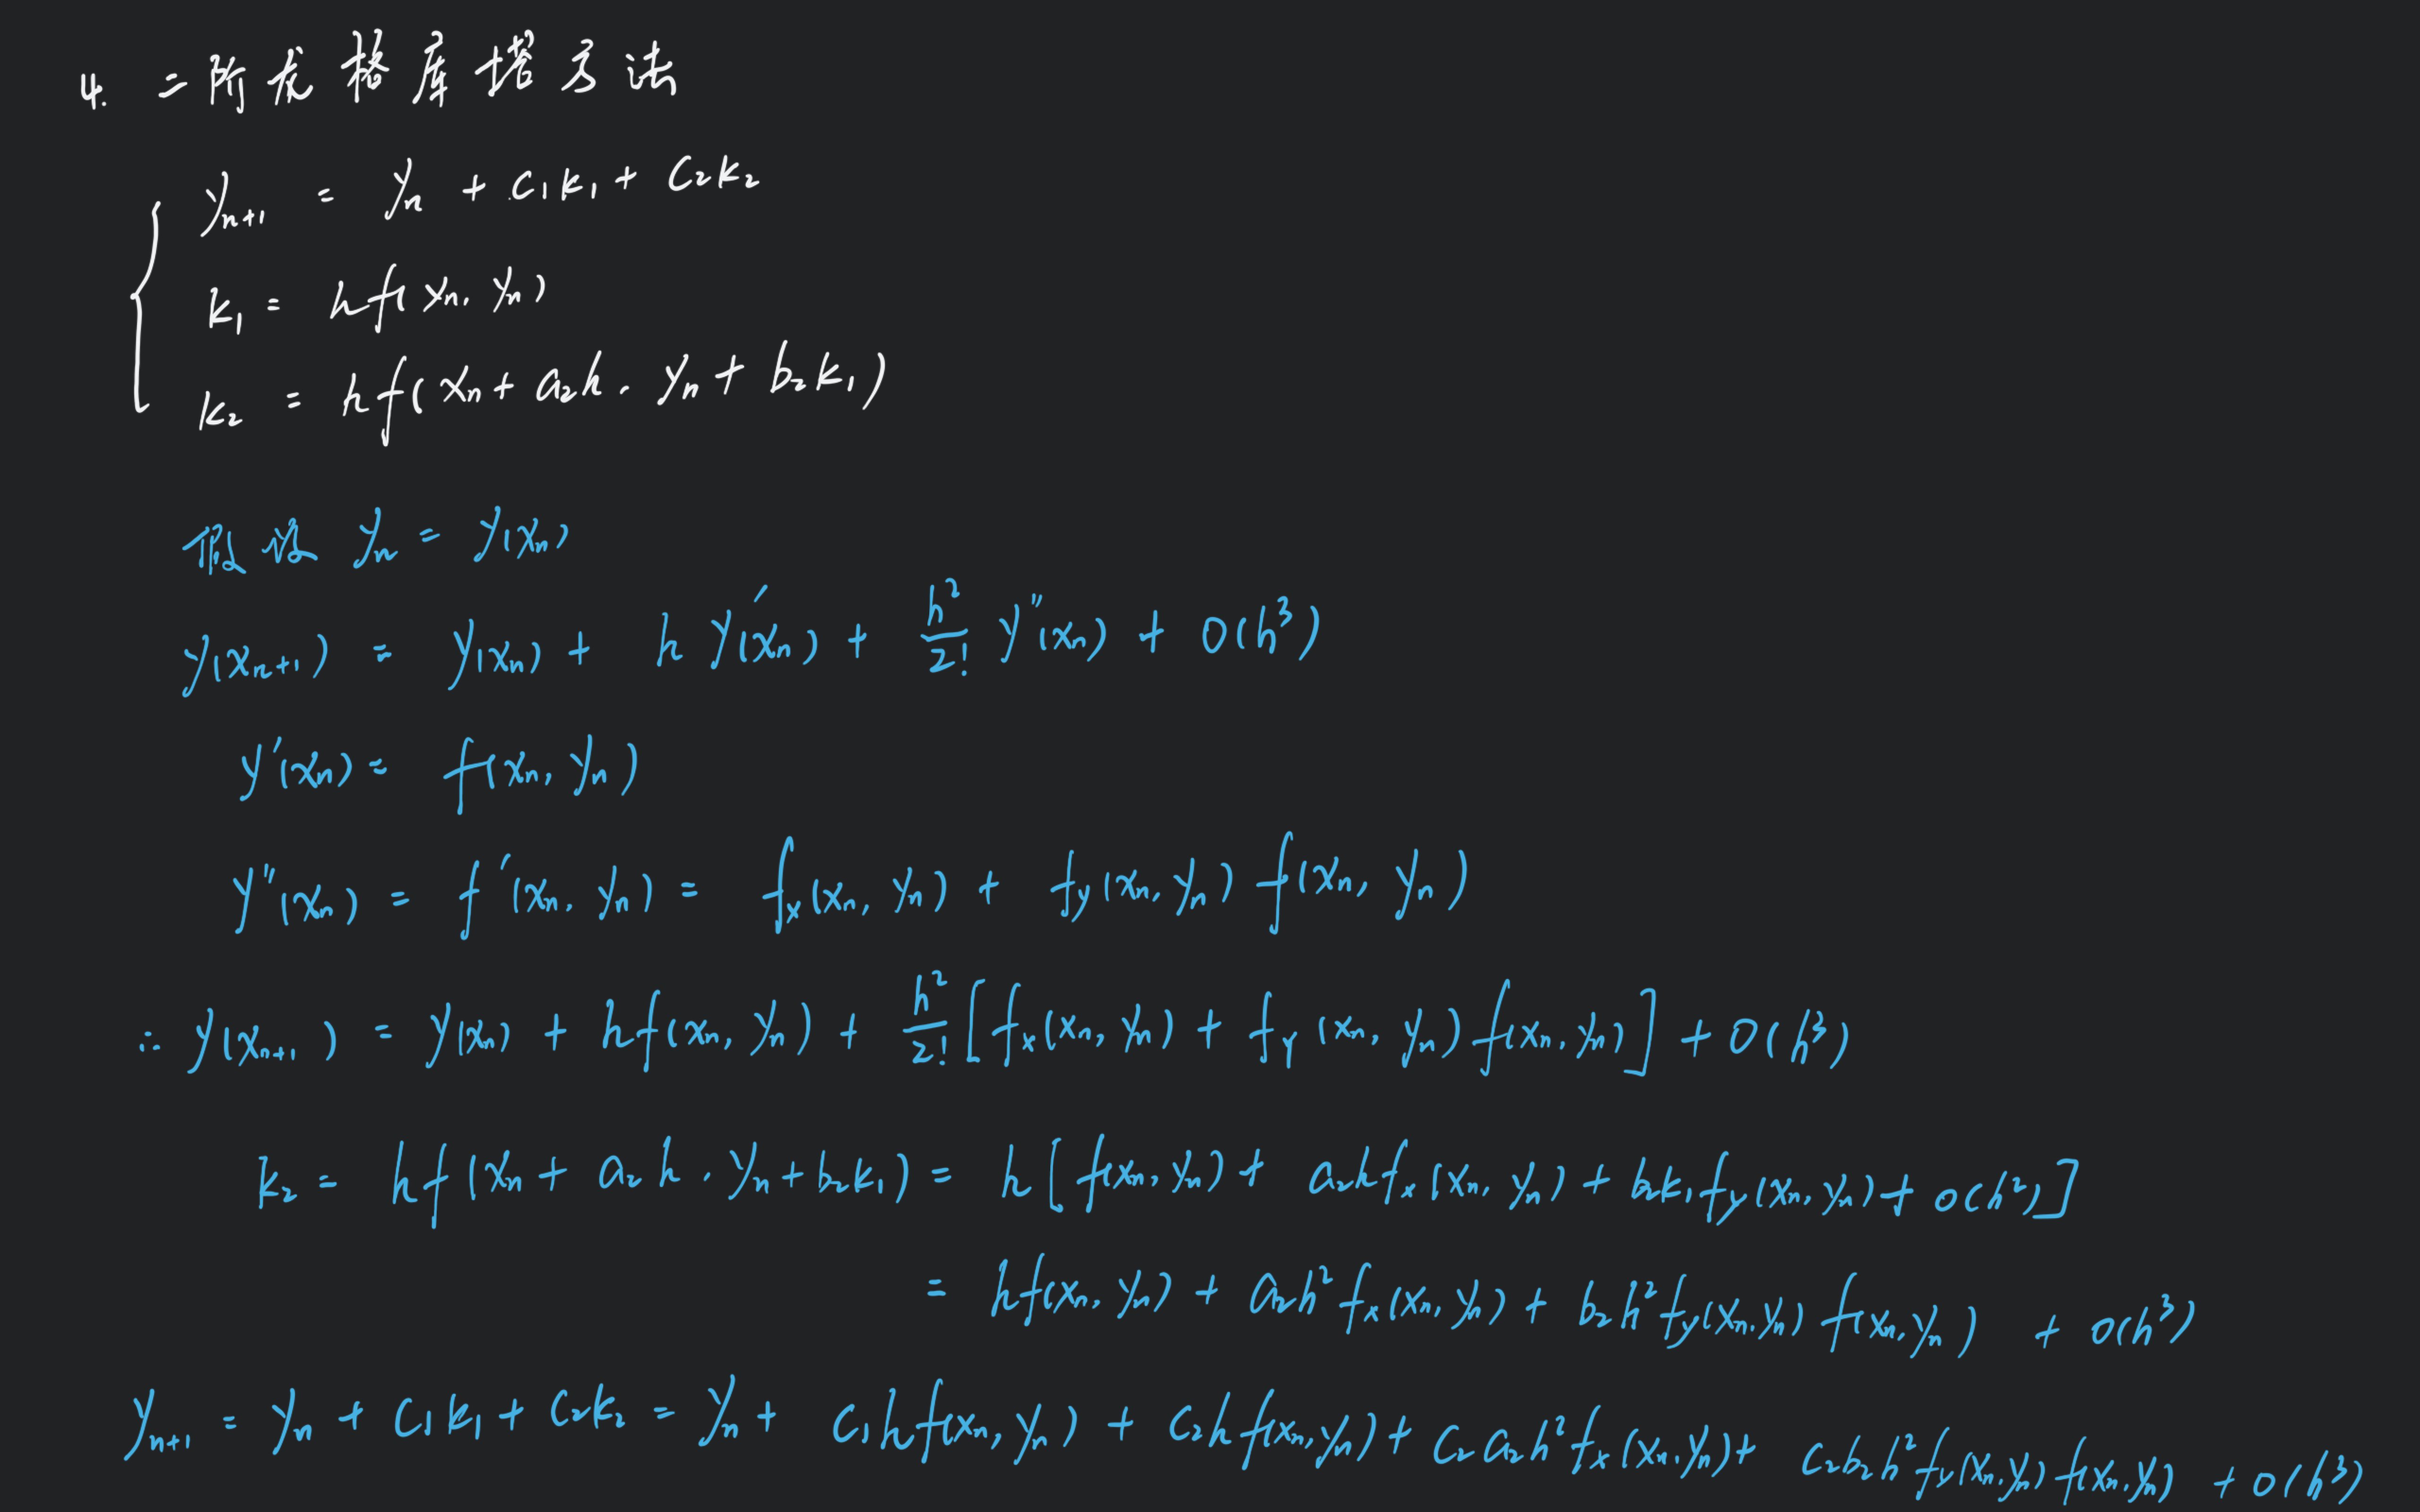 4. 二阶龙格库塔方法
y_{n+1} = y_n + c_1k_1 + c_2k_2
k_1 = hf(x_n, y_n)
k_2 = hf(x_n + a_2h, y_n + b_2k_1)
假设 y_n = y(x_n)
y(x_{n+1}) = y(x_n) + h y'(x_n) + \frac{h^2}{2!} y''(x_n) + O(h^3)
y'(x_n) = f(x_n, y_n)
y''(x_n) = f'(x_n, y_n) = f_x(x_n, y_n) + f_y(x_n, y_n) f(x_n, y_n)
∴ y(x_{n+1}) = y(x_n) + hf(x_n, y_n) + \frac{h^2}{2!} [f_x(x_n, y_n) + f_y(x_n, y_n) f(x_n, y_n)] + O(h^3)
k_2 = hf(x_n + a_2h, y_n + b_2k_1) = h[f(x_n, y_n) + a_2hf_x(x_n, y_n) + b_2k_1f_y(x_n, y_n) + O(h^2)]
= hf(x_n, y_n) + a_2h^2f_x(x_n, y_n) + b_2h^2f_y(x_n, y_n) f(x_n, y_n) + O(h^3)
y_{n+1} = y_n + c_1k_1 + c_2k_2 = y_n + c_1hf(x_n, y_n) + c_2hf(x_n, y_n) + c_2a_2h^2f_x(x_n, y_n) + c_2b_2h^2f_y(x_n, y_n)f(x_n, y_n) + O(h^3)